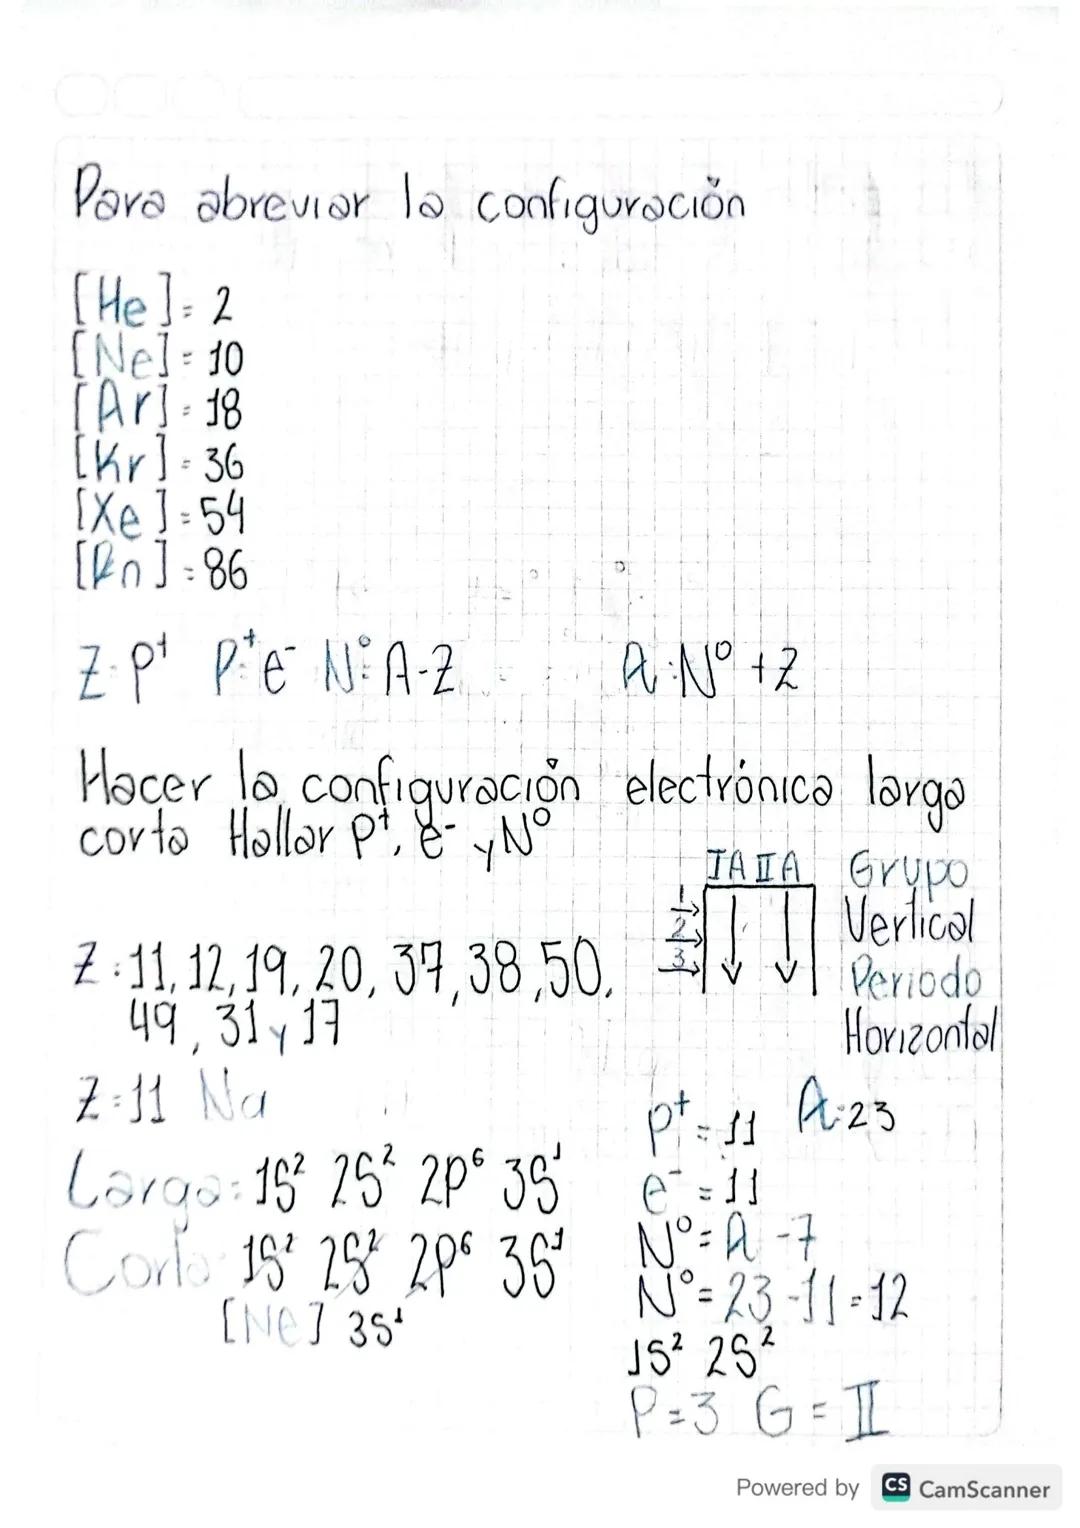 Para abreviar la configuración
[He]= 2
[Ne]= 10
[Ar]= 18
[Kr]= 36
[Xe]= 54
[Rn]= 86
Z=p⁺ P⁺=e⁻ N°=A-Z A=N°+Z
Hacer la configuración electrónica larga
corta Hallar p⁺, e⁻ y N°
IA IIA Grupo
1 Vertical
2
3 Periodo
Horizontal
Z=11, 12, 19, 20, 37, 38, 50,
49, 31 y 17
Z=11 Na
Larga= 1S² 2S² 2p⁶ 3S¹
Corta 1S² 2S² 2P⁶ 3S¹
[Ne] 3S¹
p⁺=11 A=23
e⁻=11
N°=A-7
N°=23-11=12
1S² 2S²
P=3 G=II
Powered by CS CamScanner